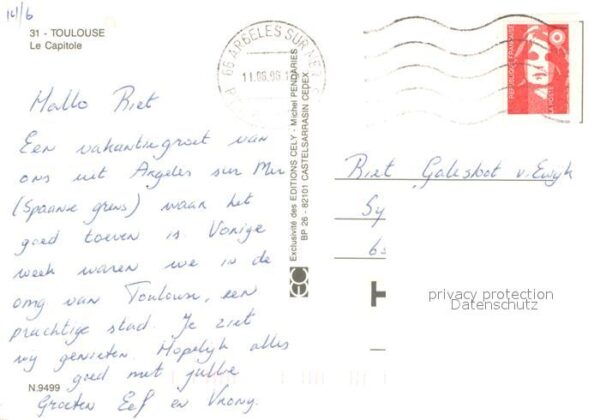 14/6
31 - TOULOUSE
Le Capitole
66 ARGELES SUR MER
11.06.96
REPUBLIQUE FRANÇAISE
LA POSTE
Hallo Riet
Een vakantiegroet van
ons uit Argeles sur Mer
(Spaanse grens) waar het
goed toeven is. Vorige
week waren we in de
omg van Toulouse, een
prachtige stad. Je ziet
wy genieten. Hopelyk alles
goed met jullie
Groeten Eef en Vrony.
N.9499
Exclusivité des EDITIONS CELY - Michel PENDARIES
BP 26 - 82101 CASTELSARRASIN CEDEX
Riet Galesloot v. Ewyk
Sy
6
H
privacy protection
Datenschutz